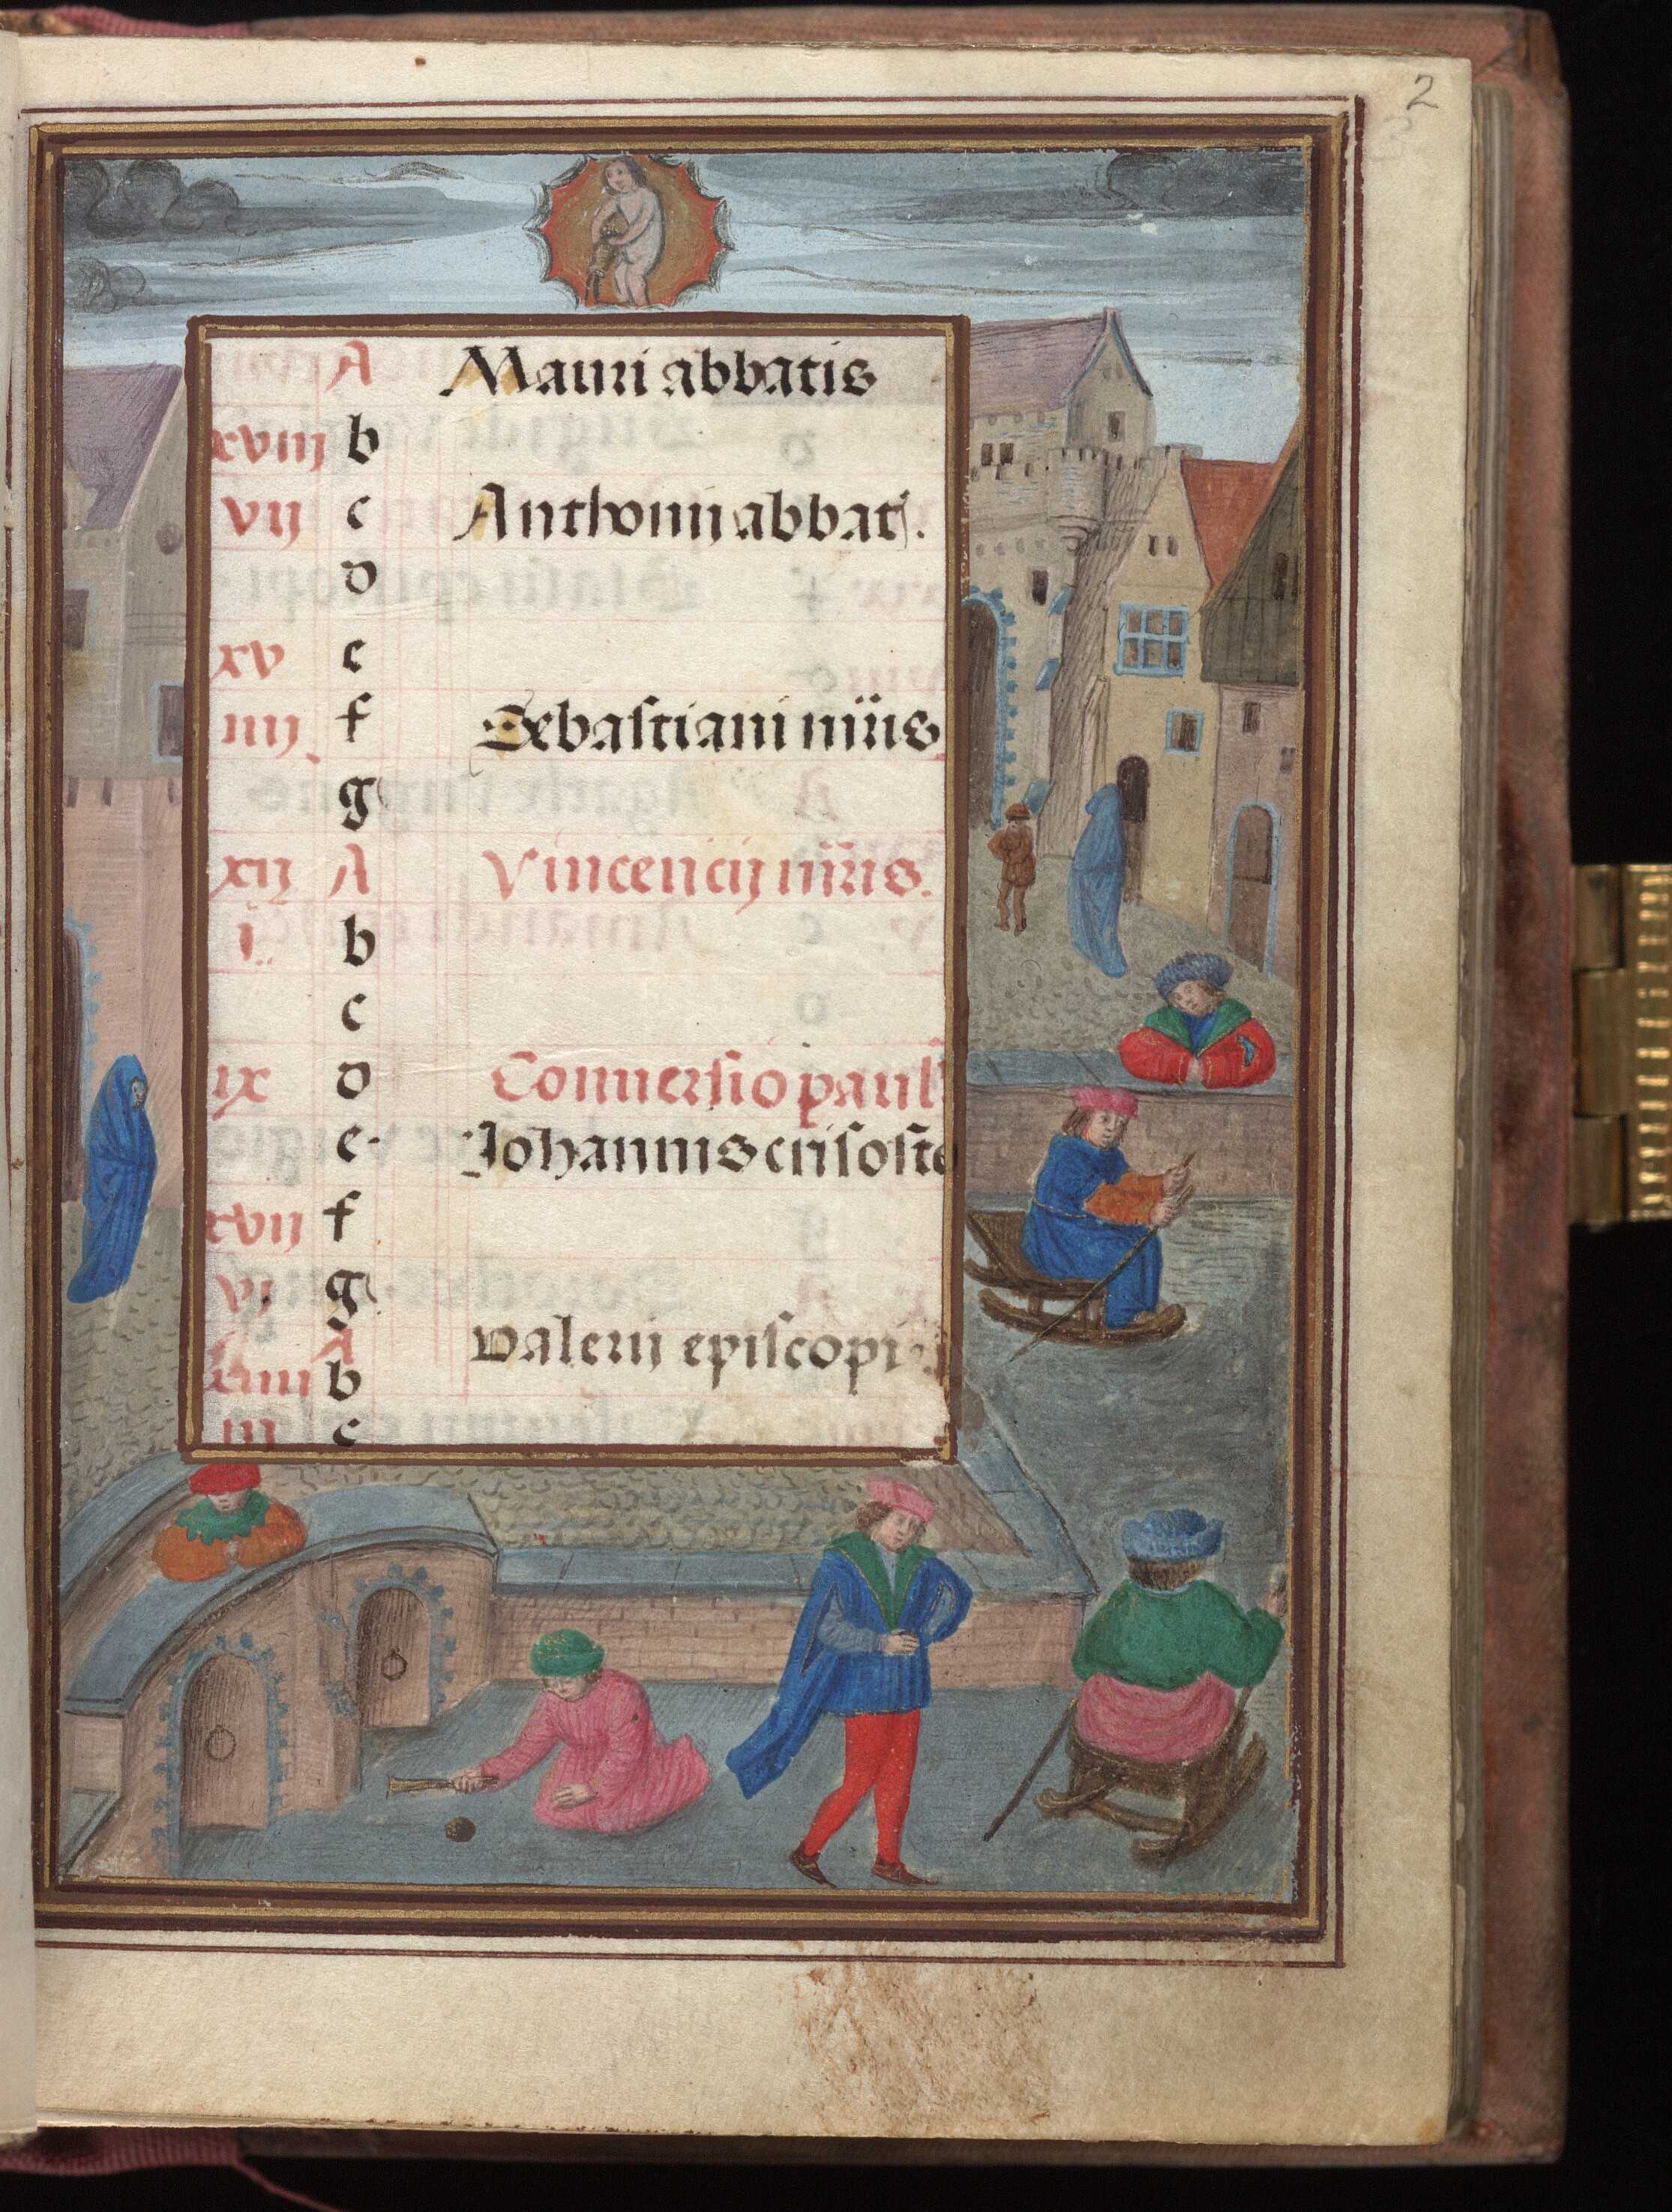 2
A Mauri abbatis
xviij b
vij c Anthonij abbatꝭ.
d
xv e
iiij f Sebastiani mr̄is
g
xij A Vincencij mr̄is.
i. b
c
ix d Conuersio pauli
e Johannis crisosto
xvij f
vj g
A Valerij episcopi
xiiij b
iij c